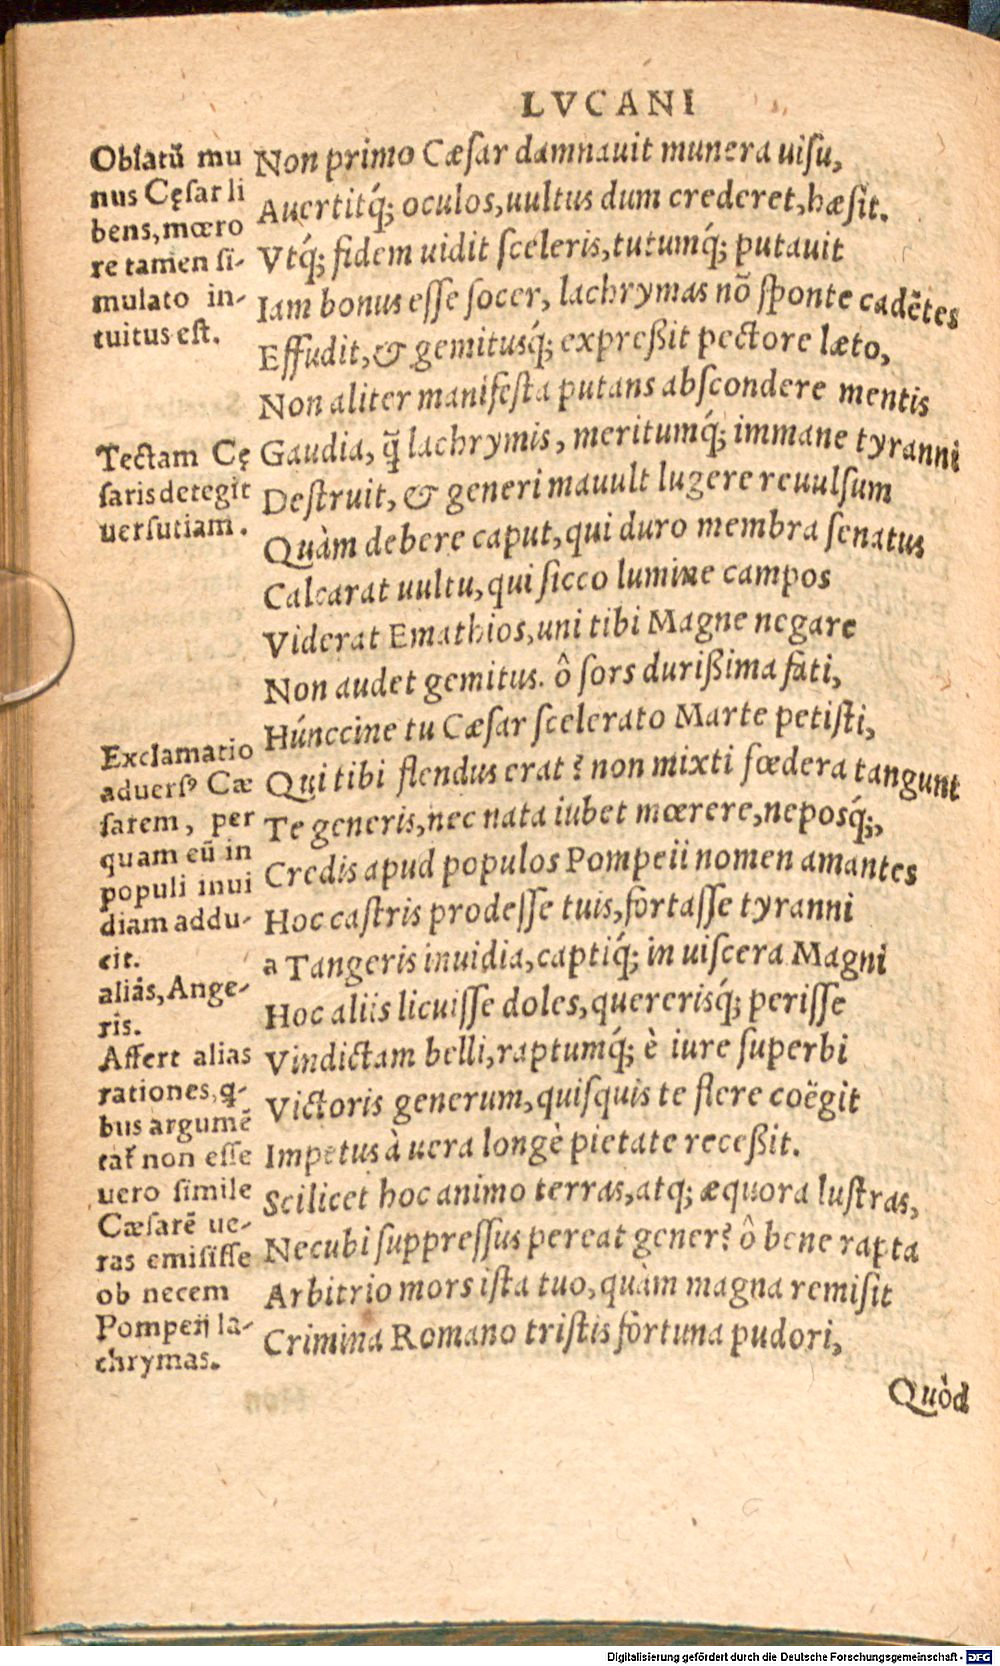 LVCANI
Oblatū mu
nus Cęſar li
bens, mœro
re tamen ſi-
mulato in-
tuitus eſt.
Non primo Cæſar damnauit munera uiſu,
Auertitq́; oculos, uultus dum crederet, hæſit.
Vtq́; fidem uidit ſceleris, tutumq́; putauit
Iam bonus eſſe ſocer, lachrymas nō ſponte cadētes
Effudit, & gemitusq́; expreßit pectore læto,
Non aliter manifeſta putans abſcondere mentis
Tectam Cę
ſaris detegit
uerſutiam.
Gaudia, q̃ lachrymis, meritumq́; immane tyranni
Deſtruit, & generi mauult lugere reuulſum
Quàm debere caput, qui duro membra ſenatus
Calcarat uultu, qui ſicco lumine campos
Viderat Emathios, uni tibi Magne negare
Non audet gemitus. ô ſors durißima fati,
Húnccine tu Cæſar ſcelerato Marte petiſti,
Exclamatio
aduerſꝰ Cæ
ſarem, per
quam eū in
populi inui
diam addu-
cit.
aliâs, Ange-
ris.
Qui tibi flendus erat? non mixti fœdera tangunt
Te generis, nec nata iubet mœrere, neposq́;,
Credis apud populos Pompeii nomen amantes
Hoc caſtris prodeſſe tuis, fortaſſe tyranni
a Tangeris inuidia, captiq́; in uiſcera Magni
Hoc aliis licuiſſe doles, quererisq́; periſſe
Affert alias
rationes, q-
bus argumē
tat̄ non eſſe
uero ſimile
Cæſarē ue-
ras emiſiſſe
ob necem
Pompeij la-
chrymas.
Vindictam belli, raptumq́; è iure ſuperbi
Victoris generum, quiſquis te flere coëgit
Impetus à uera longè pietate receßit.
Scilicet hoc animo terras, atq; æquora luſtras,
Necubi ſuppreſſus pereat gener? ô bene rapta
Arbitrio mors iſta tuo, quàm magna remiſit
Crimina Romano triſtis fortuna pudori,
Quòd
Digitalisierung gefördert durch die Deutsche Forschungsgemeinschaft - DFG